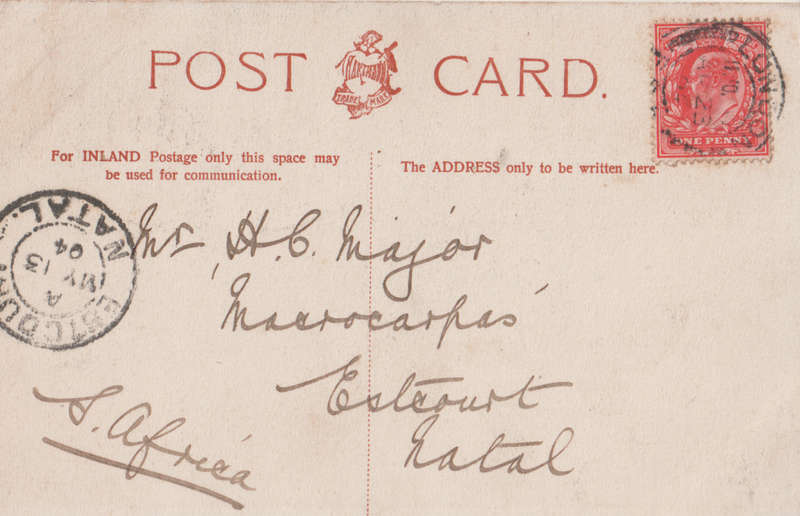 POST CARD.
HARTMANN
TRADE MARK
ONE PENNY
For INLAND Postage only this space may
be used for communication.
The ADDRESS only to be written here.
NATAL.
ESTCOURT
A
MY 13
04
Mr H. C. Major
"Macrocarpas"
Estcourt
Natal
S. Africa